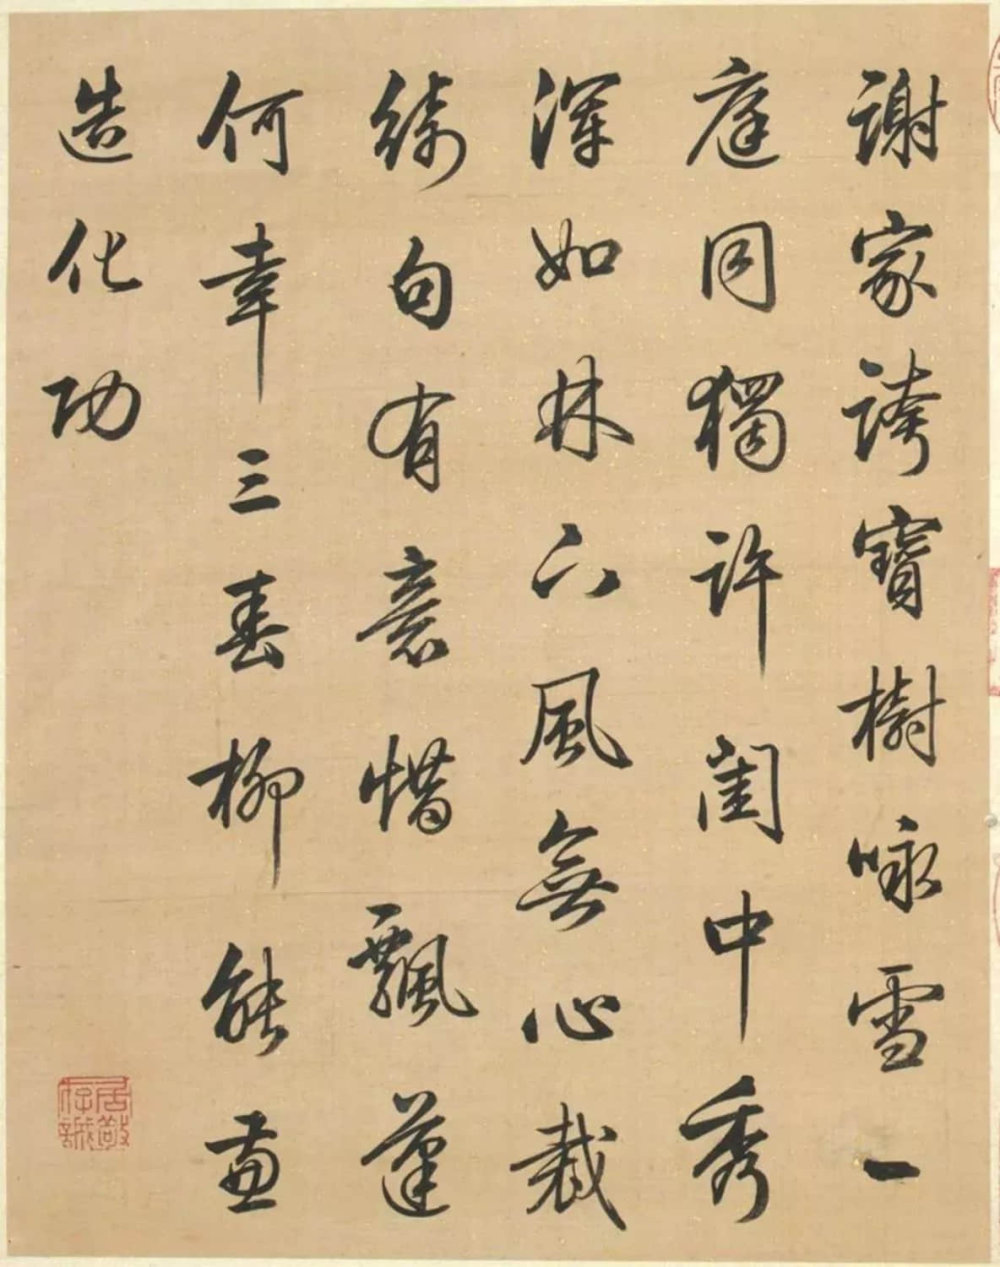 謝家誇寶樹咏雪一
庭同獨許閨中秀
渾如林下風無心裁
綺句有意惜飄蓬
何幸三春柳能
造化功
居敬
存誠